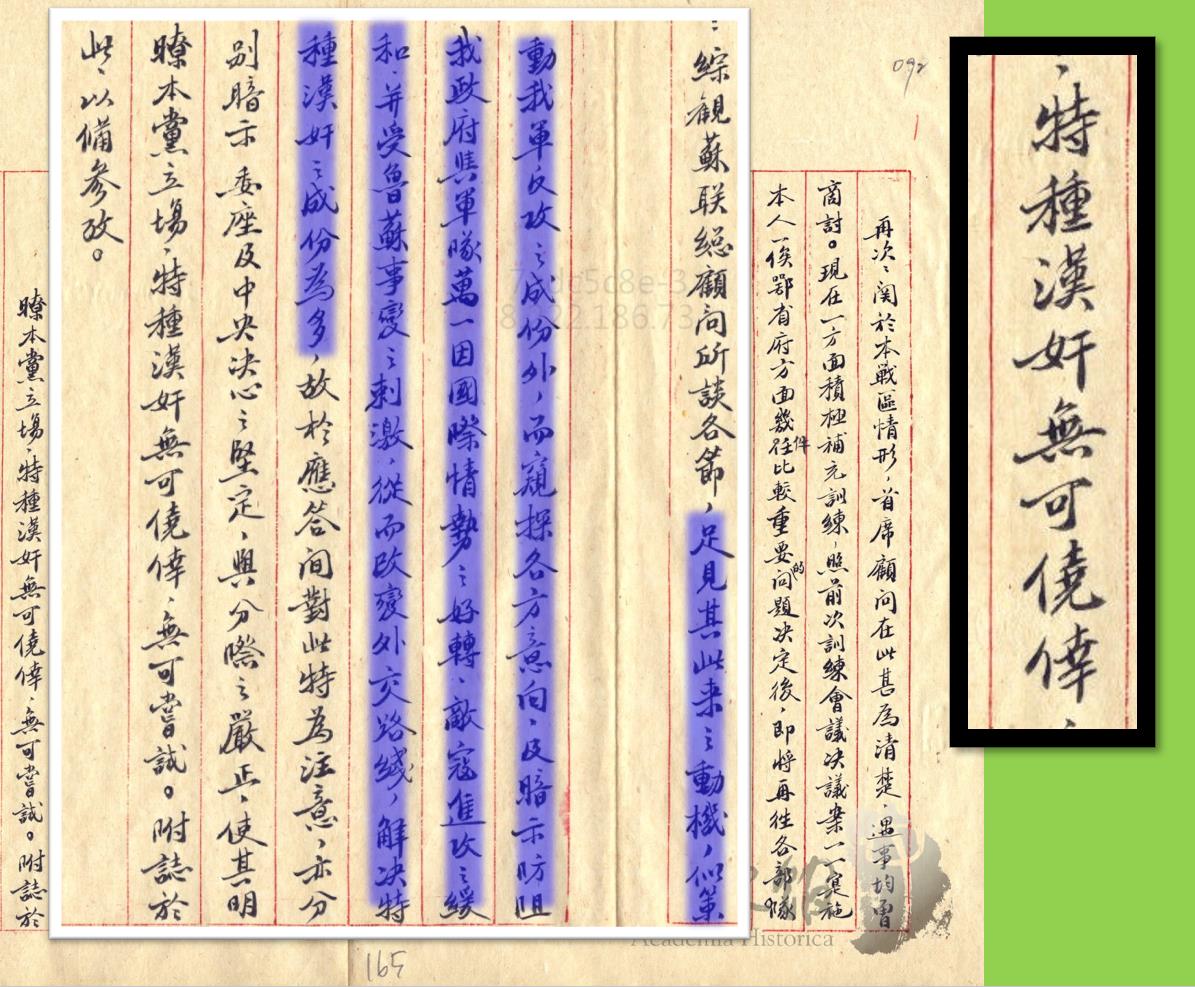 特種漢奸無可僥倖、
092
再次、関於本戰區情形，首席顧問在此甚為清楚，遇事均曾
商討。現在一方面積極補充訓練，照前次訓練會議決議案一一實施
本人一俟鄂省府方面幾件比較重要的問題決定後，即將再往各部隊
：綜觀蘇联總顧问所談各節，足見其此来之動機，似策
動我軍反攻之成份外，而窺探各方意向，及暗示防阻
我政府與軍隊萬一因國際情勢之好轉、敵寇進攻之緩
和，并受魯蘇事變之刺激，從而改變外交路綫，解决特
種漢奸之成份為多，故於應答间對此特為注意，亦分
别暗示 委座及中央决心之堅定，與分際之嚴正，使其明
瞭本黨立場，特種漢奸無可僥倖、無可嘗試。附誌於
此，以備參攷。
瞭本黨立場，特種漢奸無可僥倖、無可嘗試。附誌於
Academia Historica
165